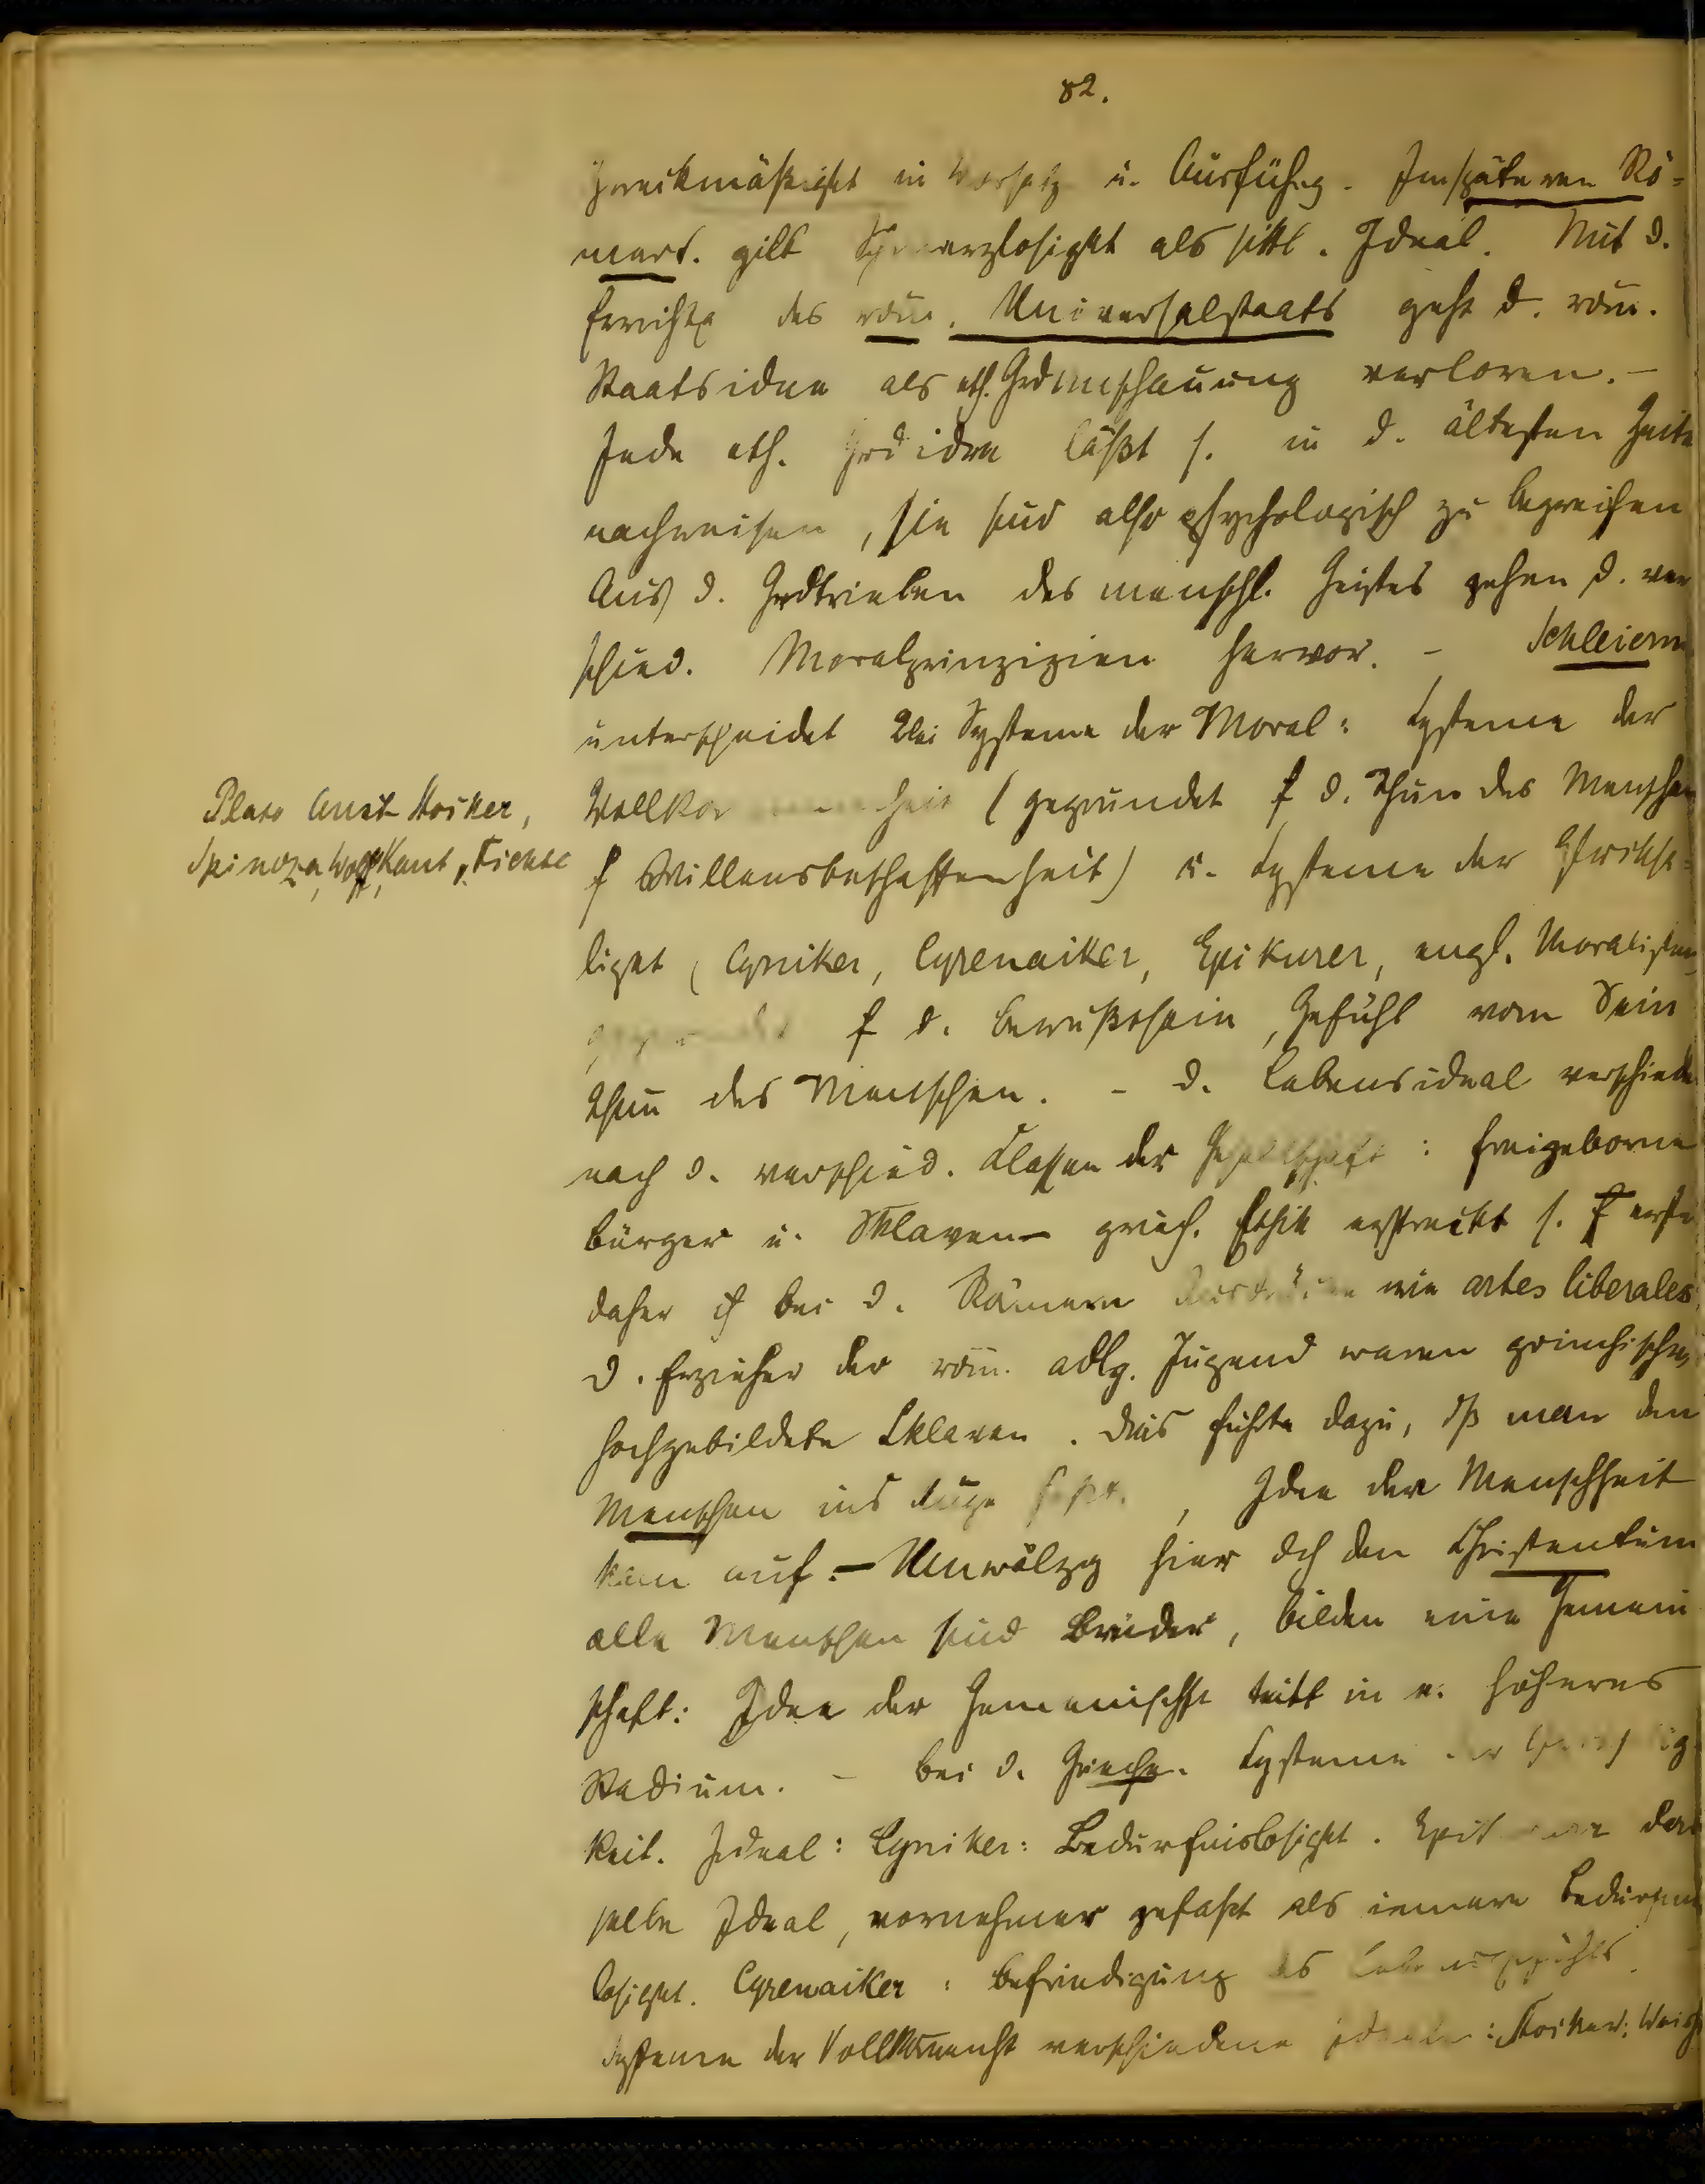 82.
Zweckmäßigkt in Vorsatz u. Ausführg. Im späteren Rö-
mert. gilt Schmerzlosigkt als sittl. Ideal. Mit d.
Errichtg des röm. Universalstaats geht d. röm.
Staatsidee als eth. Grdanschauung verloren. –
Jede eth. Grdidee läßt s. in d. ältesten Zeite
nachweisen, sie sind also psychologisch zu begreifen
Aus d. Grdtrieben des menschl. Geistes gehen d. ver
schied. Moralprinzipien hervor. – Schleierm
unterscheidet 2lei Systeme der Moral: Systeme der
Plato Arist Stoiker,
Spinoza, Wolff, Kant, Fichte
Vollkommenheit (gegründet f d. Thun des Menschen
f Willensbeschaffenheit) u. Systeme der Glückse-
ligkt (Cyniker, Cyrenaiker, Epikurer, engl. Moralisten,
gegründet f d. Bewußtsein, Gefühl vom Sein
Thun des Menschen. – D. Lebensideal verschiede
nach d. verschied. Klassen der Gesellschaft: freigeborne
Bürger u. Sklaven – griech. Ethik erstreckt s. f erste
daher if bei d. Römern Ausdrücke wie artes liberales
D. Erzieher der röm. adlg. Jugend waren griechische,
hochgebildete Sklaven. Dies führte dazu, dß man den
Menschen ins Auge faßt., Idee der Menschheit
kam auf. – Umwälzg hier dch den Christentum
alle Menschen sind Brüder, bilden eine Gemein
schaft: Idee der Gemeinschft tritt in e. höheres
Stadium. – Bei d. Griechn. Systeme der Glückselig
keit. Ideal: Cyniker: Bedürfnislosigkt. Epikurer das
selbe Ideal, vornehmer gefaßt als innere Bedürfnis
losigkt. Cyrenaiker: Befriedigung des Lebensgefühls.
Systeme der Vollkommenht verschiedene Ideale: Stoiker: Weise